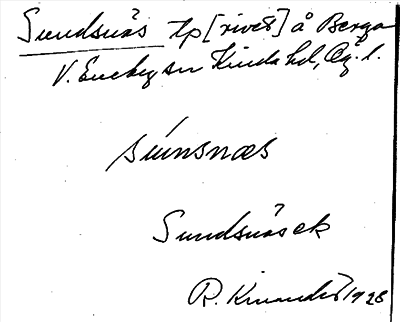 Sundsnäs tp [rivet] å Berga
V. Eneby sn Kinda hd, Ög. l.
súnsnæs
Sundsnäs ek
R. Kinander 1928